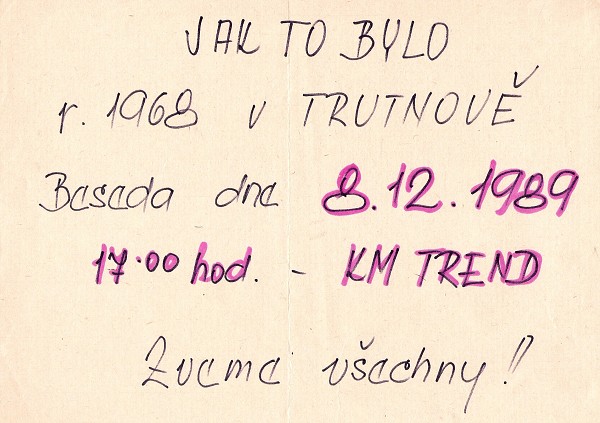 JAK TO BYLO
r. 1968 v TRUTNOVĚ
Beseda dne 8.12.1989
17.00 hod. - KM TREND
Zveme všechny!